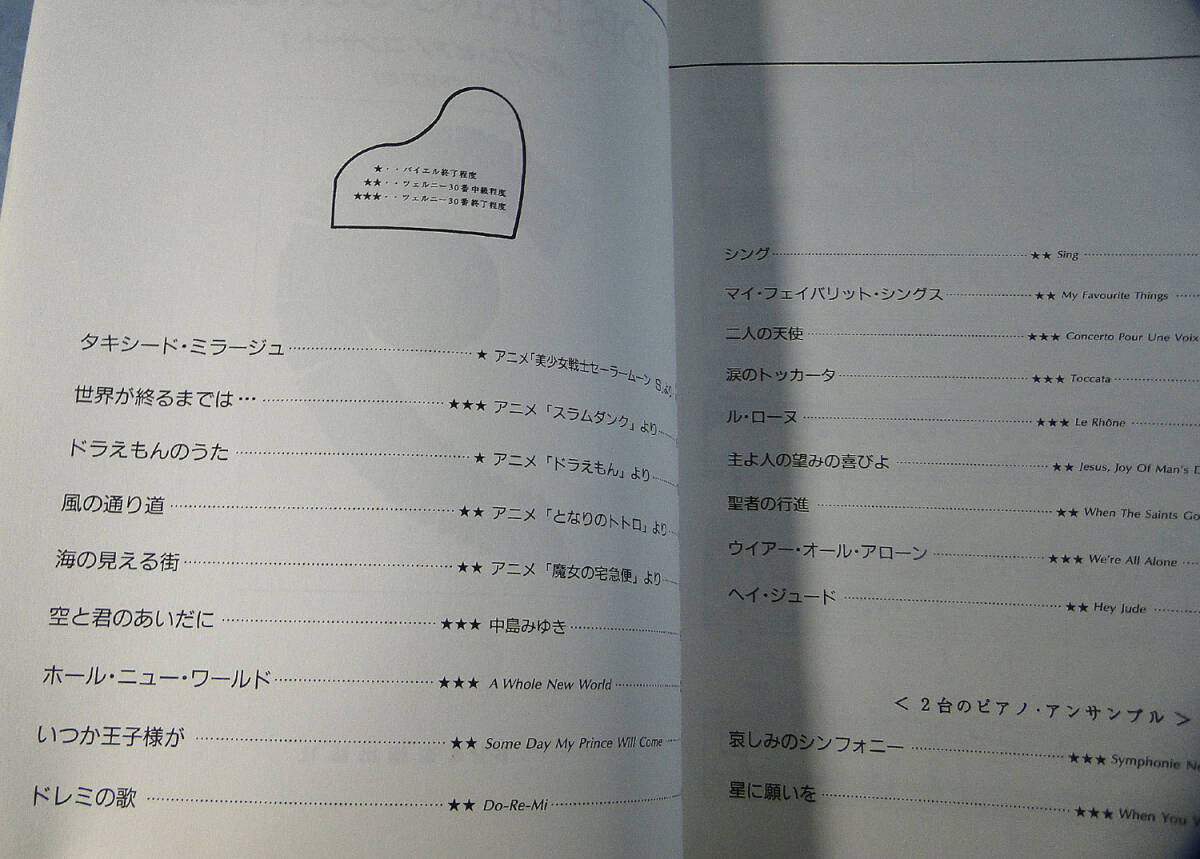 ★・・バイエル終了程度
★★・・ツェルニー30番中級程度
★★★・・ツェルニー30番終了程度
タキシード・ミラージュ ★ アニメ「美少女戦士セーラームーン S」より
世界が終るまでは… ★★★ アニメ「スラムダンク」より
ドラえもんのうた ★ アニメ「ドラえもん」より
風の通り道 ★★ アニメ「となりのトトロ」より
海の見える街 ★★ アニメ「魔女の宅急便」より
空と君のあいだに ★★★ 中島みゆき
ホール・ニュー・ワールド ★★★ A Whole New World
いつか王子様が ★★ Some Day My Prince Will Come
ドレミの歌 ★★ Do-Re-Mi
シング ★★ Sing
マイ・フェイバリット・シングス ★★ My Favourite Things
二人の天使 ★★★ Concerto Pour Une Voix
涙のトッカータ ★★★ Toccata
ル・ローヌ ★★★ Le Rhône
主よ人の望みの喜びよ ★★ Jesus, Joy Of Man's
聖者の行進 ★★ When The Saints Go
ウイアー・オール・アローン ★★★ We're All Alone
ヘイ・ジュード ★★ Hey Jude
＜2台のピアノ・アンサンブル＞
哀しみのシンフォニー ★★★ Symphonie
星に願いを ★★★ When You